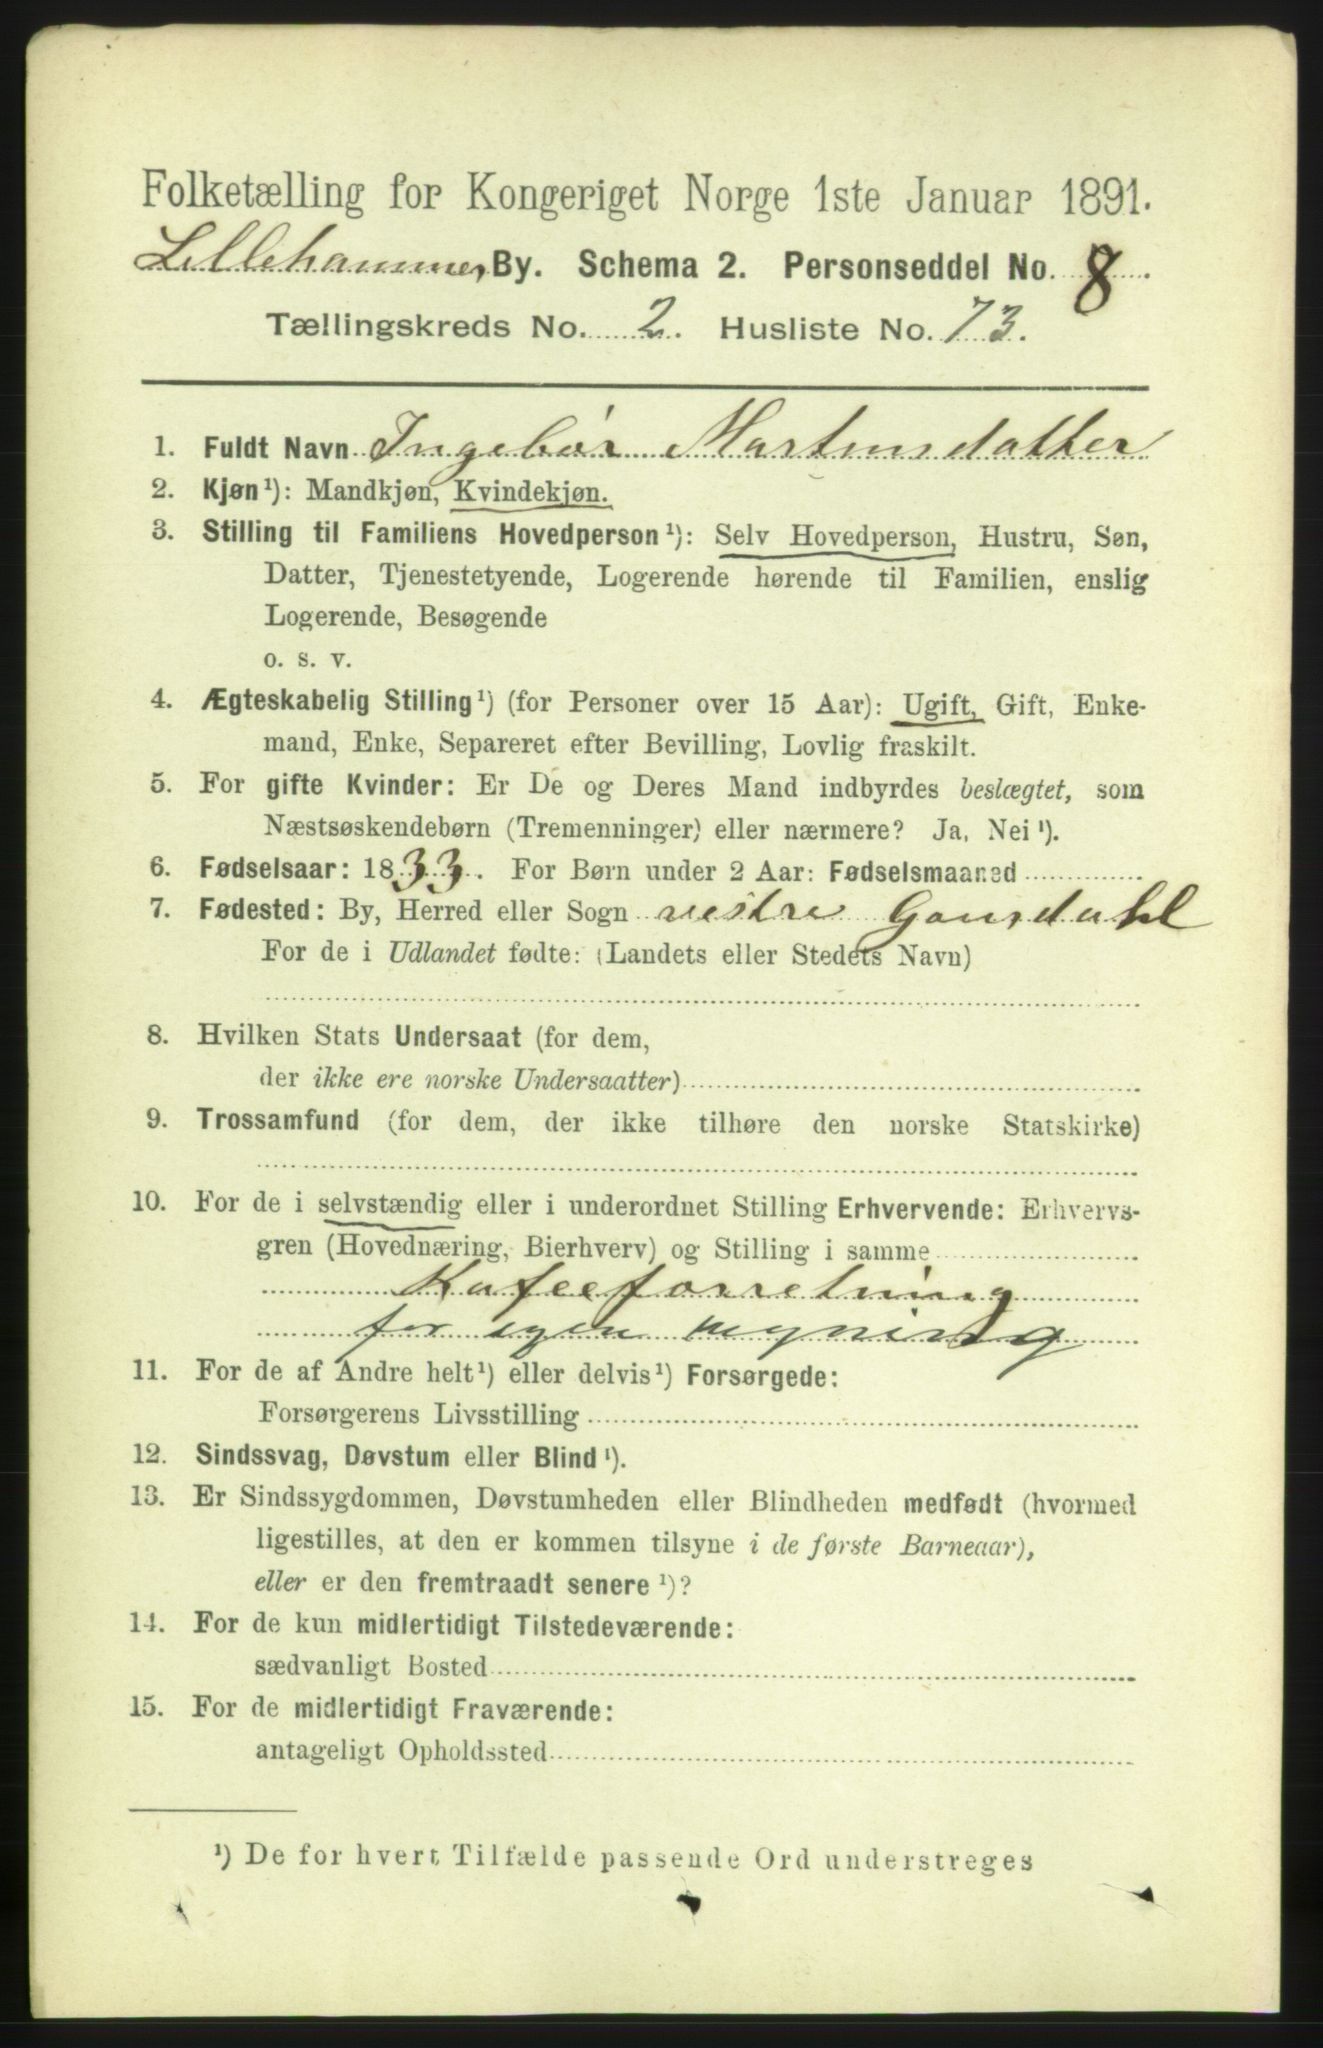 Folketælling for Kongeriget Norge 1ste Januar 1891.
Lillehammer By. Schema 2. Personseddel No. 8.
Tællingskreds No. 2. Husliste No. 73.
1. Fuldt Navn Ingebór Martinsdatter
2. Kjøn¹): Mandkjøn, Kvindekjøn.
3. Stilling til Familiens Hovedperson¹): Selv Hovedperson, Hustru, Søn,
Datter, Tjenestetyende, Logerende hørende til Familien, enslig
Logerende, Besøgende
o. s. v.
4. Ægteskabelig Stilling¹) (for Personer over 15 Aar): Ugift, Gift, Enke-
mand, Enke, Separeret efter Bevilling, Lovlig fraskilt.
5. For gifte Kvinder: Er De og Deres Mand indbyrdes beslægtet, som
Næstsøskendebørn (Tremenninger) eller nærmere? Ja, Nei¹).
6. Fødselsaar: 1833. For Børn under 2 Aar: Fødselsmaaned
7. Fødested: By, Herred eller Sogn vestre Gausdahl
For de i Udlandet fødte: (Landets eller Stedets Navn)
8. Hvilken Stats Undersaat (for dem,
der ikke ere norske Undersaatter)
9. Trossamfund (for dem, der ikke tilhøre den norske Statskirke)
10. For de i selvstændig eller i underordnet Stilling Erhvervende: Erhvervs-
gren (Hovednæring, Bierhverv) og Stilling i samme
Kafeeforretning
for egen regning
11. For de af Andre helt¹) eller delvis¹) Forsørgede:
Forsørgerens Livsstilling
12. Sindssvag, Døvstum eller Blind¹).
13. Er Sindssygdommen, Døvstumheden eller Blindheden medfødt (hvormed
ligestilles, at den er kommen tilsyne i de første Barneaar),
eller er den fremtraadt senere¹)?
14. For de kun midlertidigt Tilstedeværende:
sædvanligt Bosted
15. For de midlertidigt Fraværende:
antageligt Opholdssted
¹) De for hvert Tilfælde passende Ord understreges